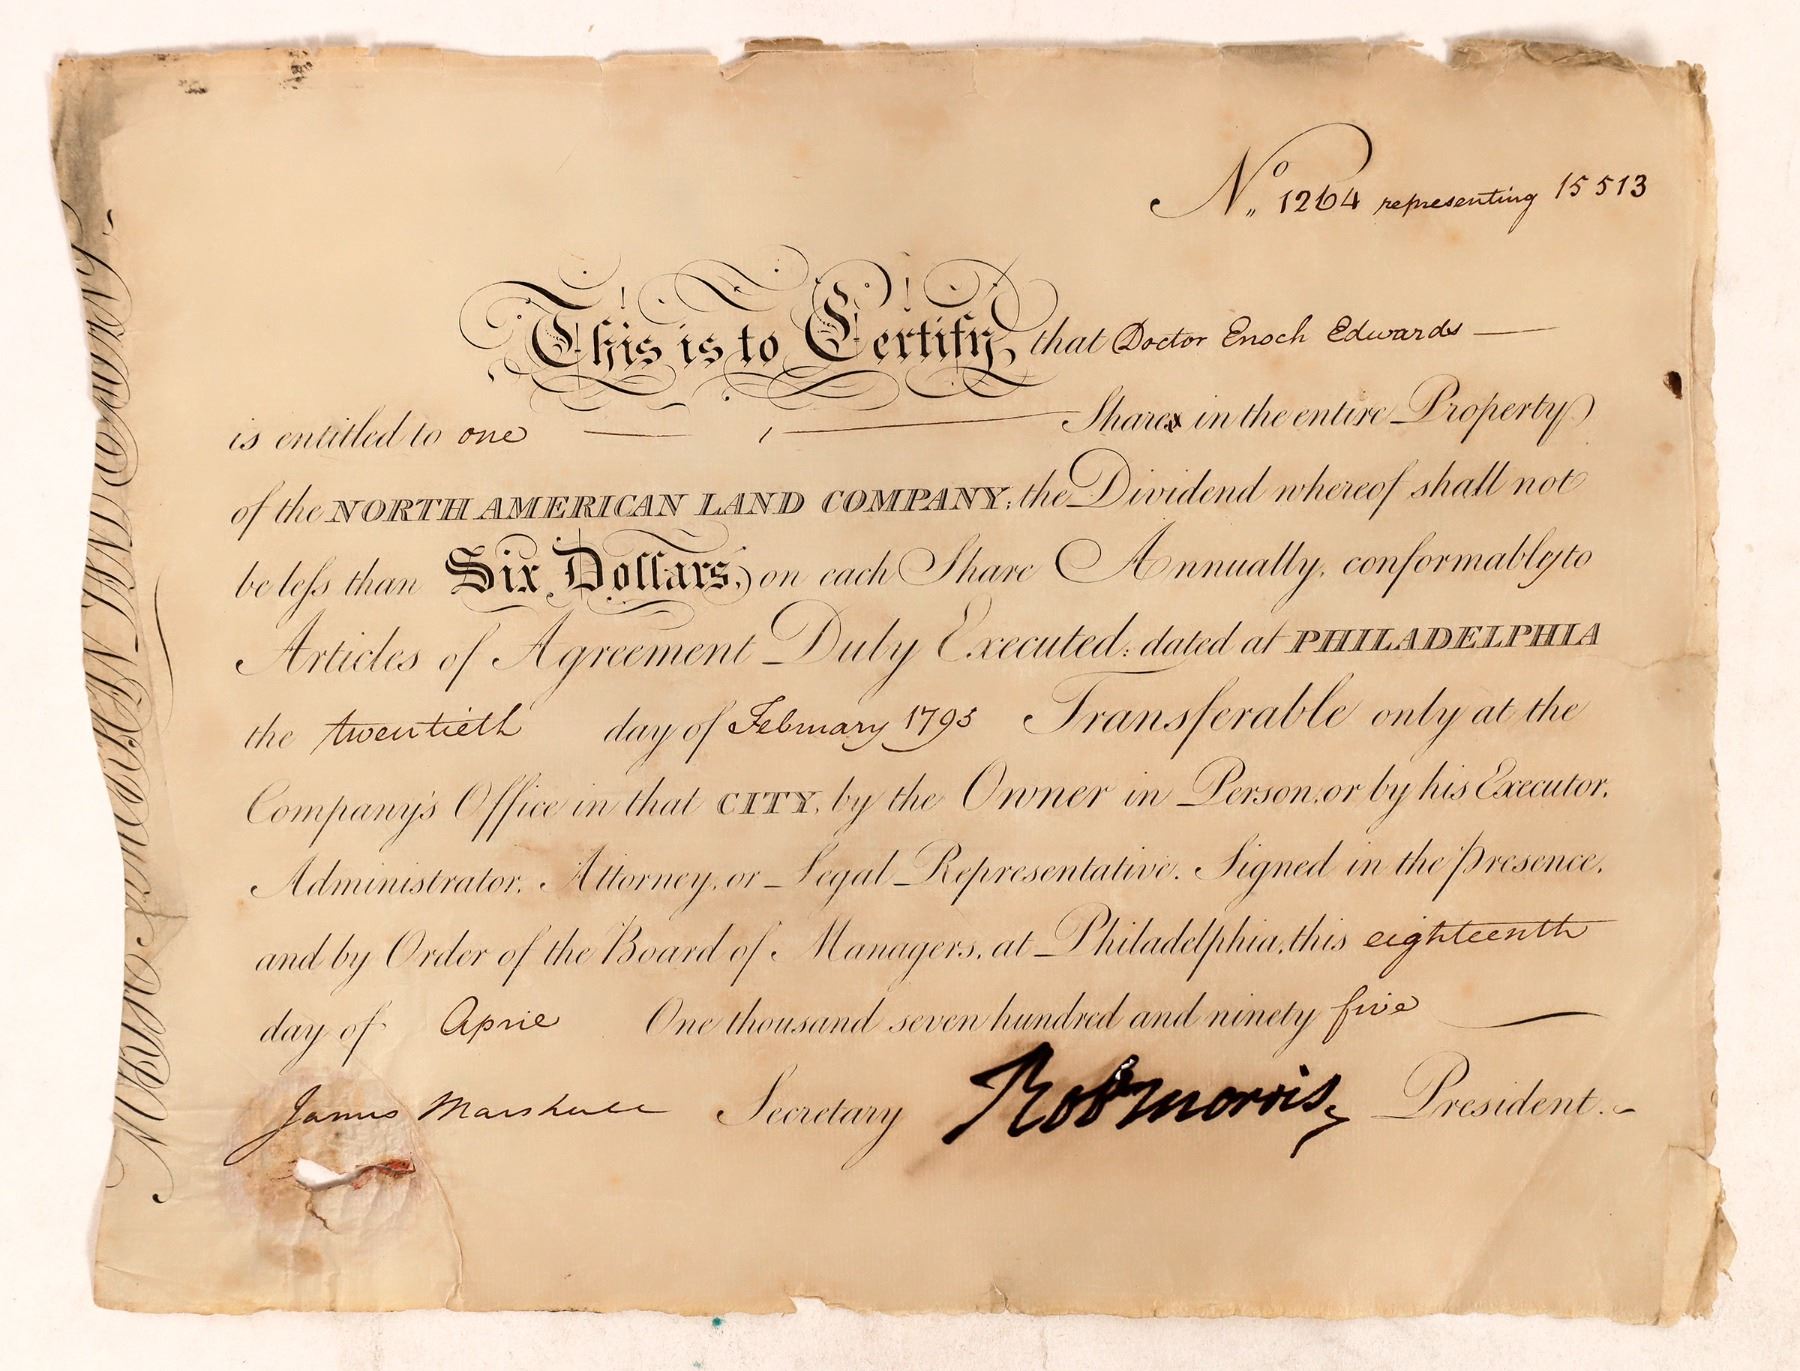 No. 1264 representing 15513
This is to Certify, that Doctor Enoch Edwards
is entitled to one Shares in the entire Property
of the NORTH AMERICAN LAND COMPANY; the Dividend whereof shall not
be leſs than Six Dollars, on each Share Annually, conformably to
Articles of Agreement Duly Executed: dated at PHILADELPHIA
the twentieth day of February 1795 Transferable only at the
Company's Office in that CITY, by the Owner in Person, or by his Executor,
Administrator, Attorney, or Legal Representative. Signed in the presence,
and by Order of the Board of Managers, at Philadelphia, this eighteenth
day of April One thousand seven hundred and ninety five
James Marshall Secretary Rob Morris President.